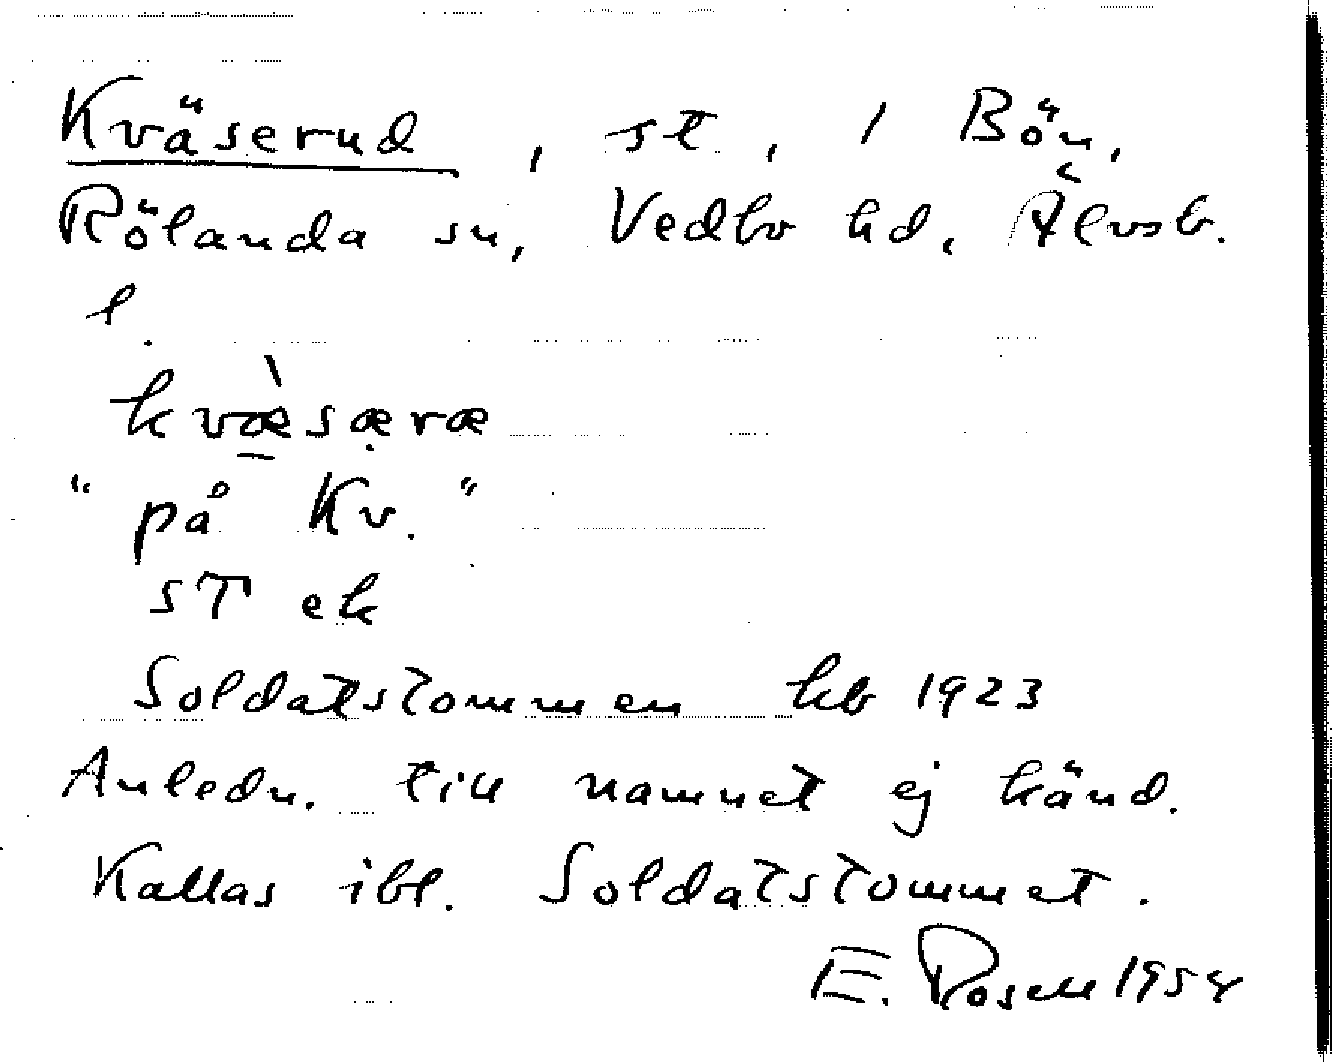 Kväserud, st, 1 Bön,
Rölanda sn, Vedbo hd, Älvsb.
l.
kvæ̀særæ
"på Kv."
ST ek
Soldatstommen hb 1923
Anledn. till namnet ej känd.
Kallas ibl. Soldatstommet.
E. Rosell 1954